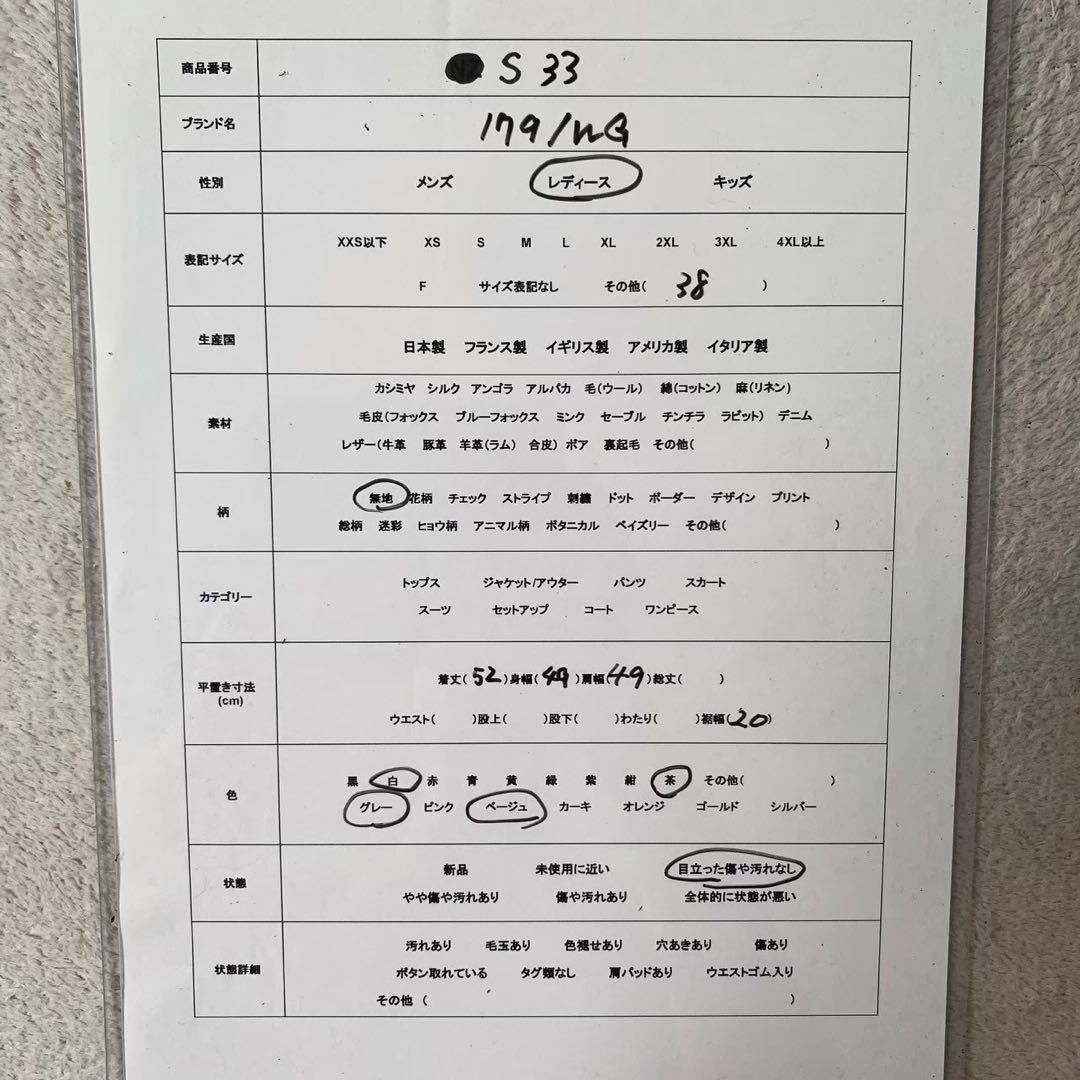 商品番号 S 33
ブランド名 179/WG
性別 メンズ レディース キッズ
XXS以下 XS S M L XL 2XL 3XL 4XL以上
表記サイズ
F サイズ表記なし その他( 38 )
生産国 日本製 フランス製 イギリス製 アメリカ製 イタリア製
カシミヤ シルク アンゴラ アルパカ 毛(ウール) 綿(コットン) 麻(リネン)
素材 毛皮(フォックス ブルーフォックス ミンク セーブル チンチラ ラビット) デニム
レザー(牛革 豚革 羊革(ラム) 合皮) ボア 裏起毛 その他( )
柄 無地 花柄 チェック ストライプ 刺繍 ドット ボーダー デザイン プリント
総柄 迷彩 ヒョウ柄 アニマル柄 ボタニカル ペイズリー その他( )
トップス ジャケット/アウター パンツ スカート
カテゴリー
スーツ セットアップ コート ワンピース
平置き寸法 着丈( 52 )身幅( 49 )肩幅( 49 )総丈( )
(cm)
ウエスト( )股上( )股下( )わたり( )裾幅( 20 )
黒 白 赤 青 黄 緑 紫 紺 茶 その他( )
色
グレー ピンク ベージュ カーキ オレンジ ゴールド シルバー
新品 未使用に近い 目立った傷や汚れなし
状態
やや傷や汚れあり 傷や汚れあり 全体的に状態が悪い
汚れあり 毛玉あり 色褪せあり 穴あきあり 傷あり
状態詳細 ボタン取れている タグ類なし 肩パッドあり ウエストゴム入り
その他 ( )